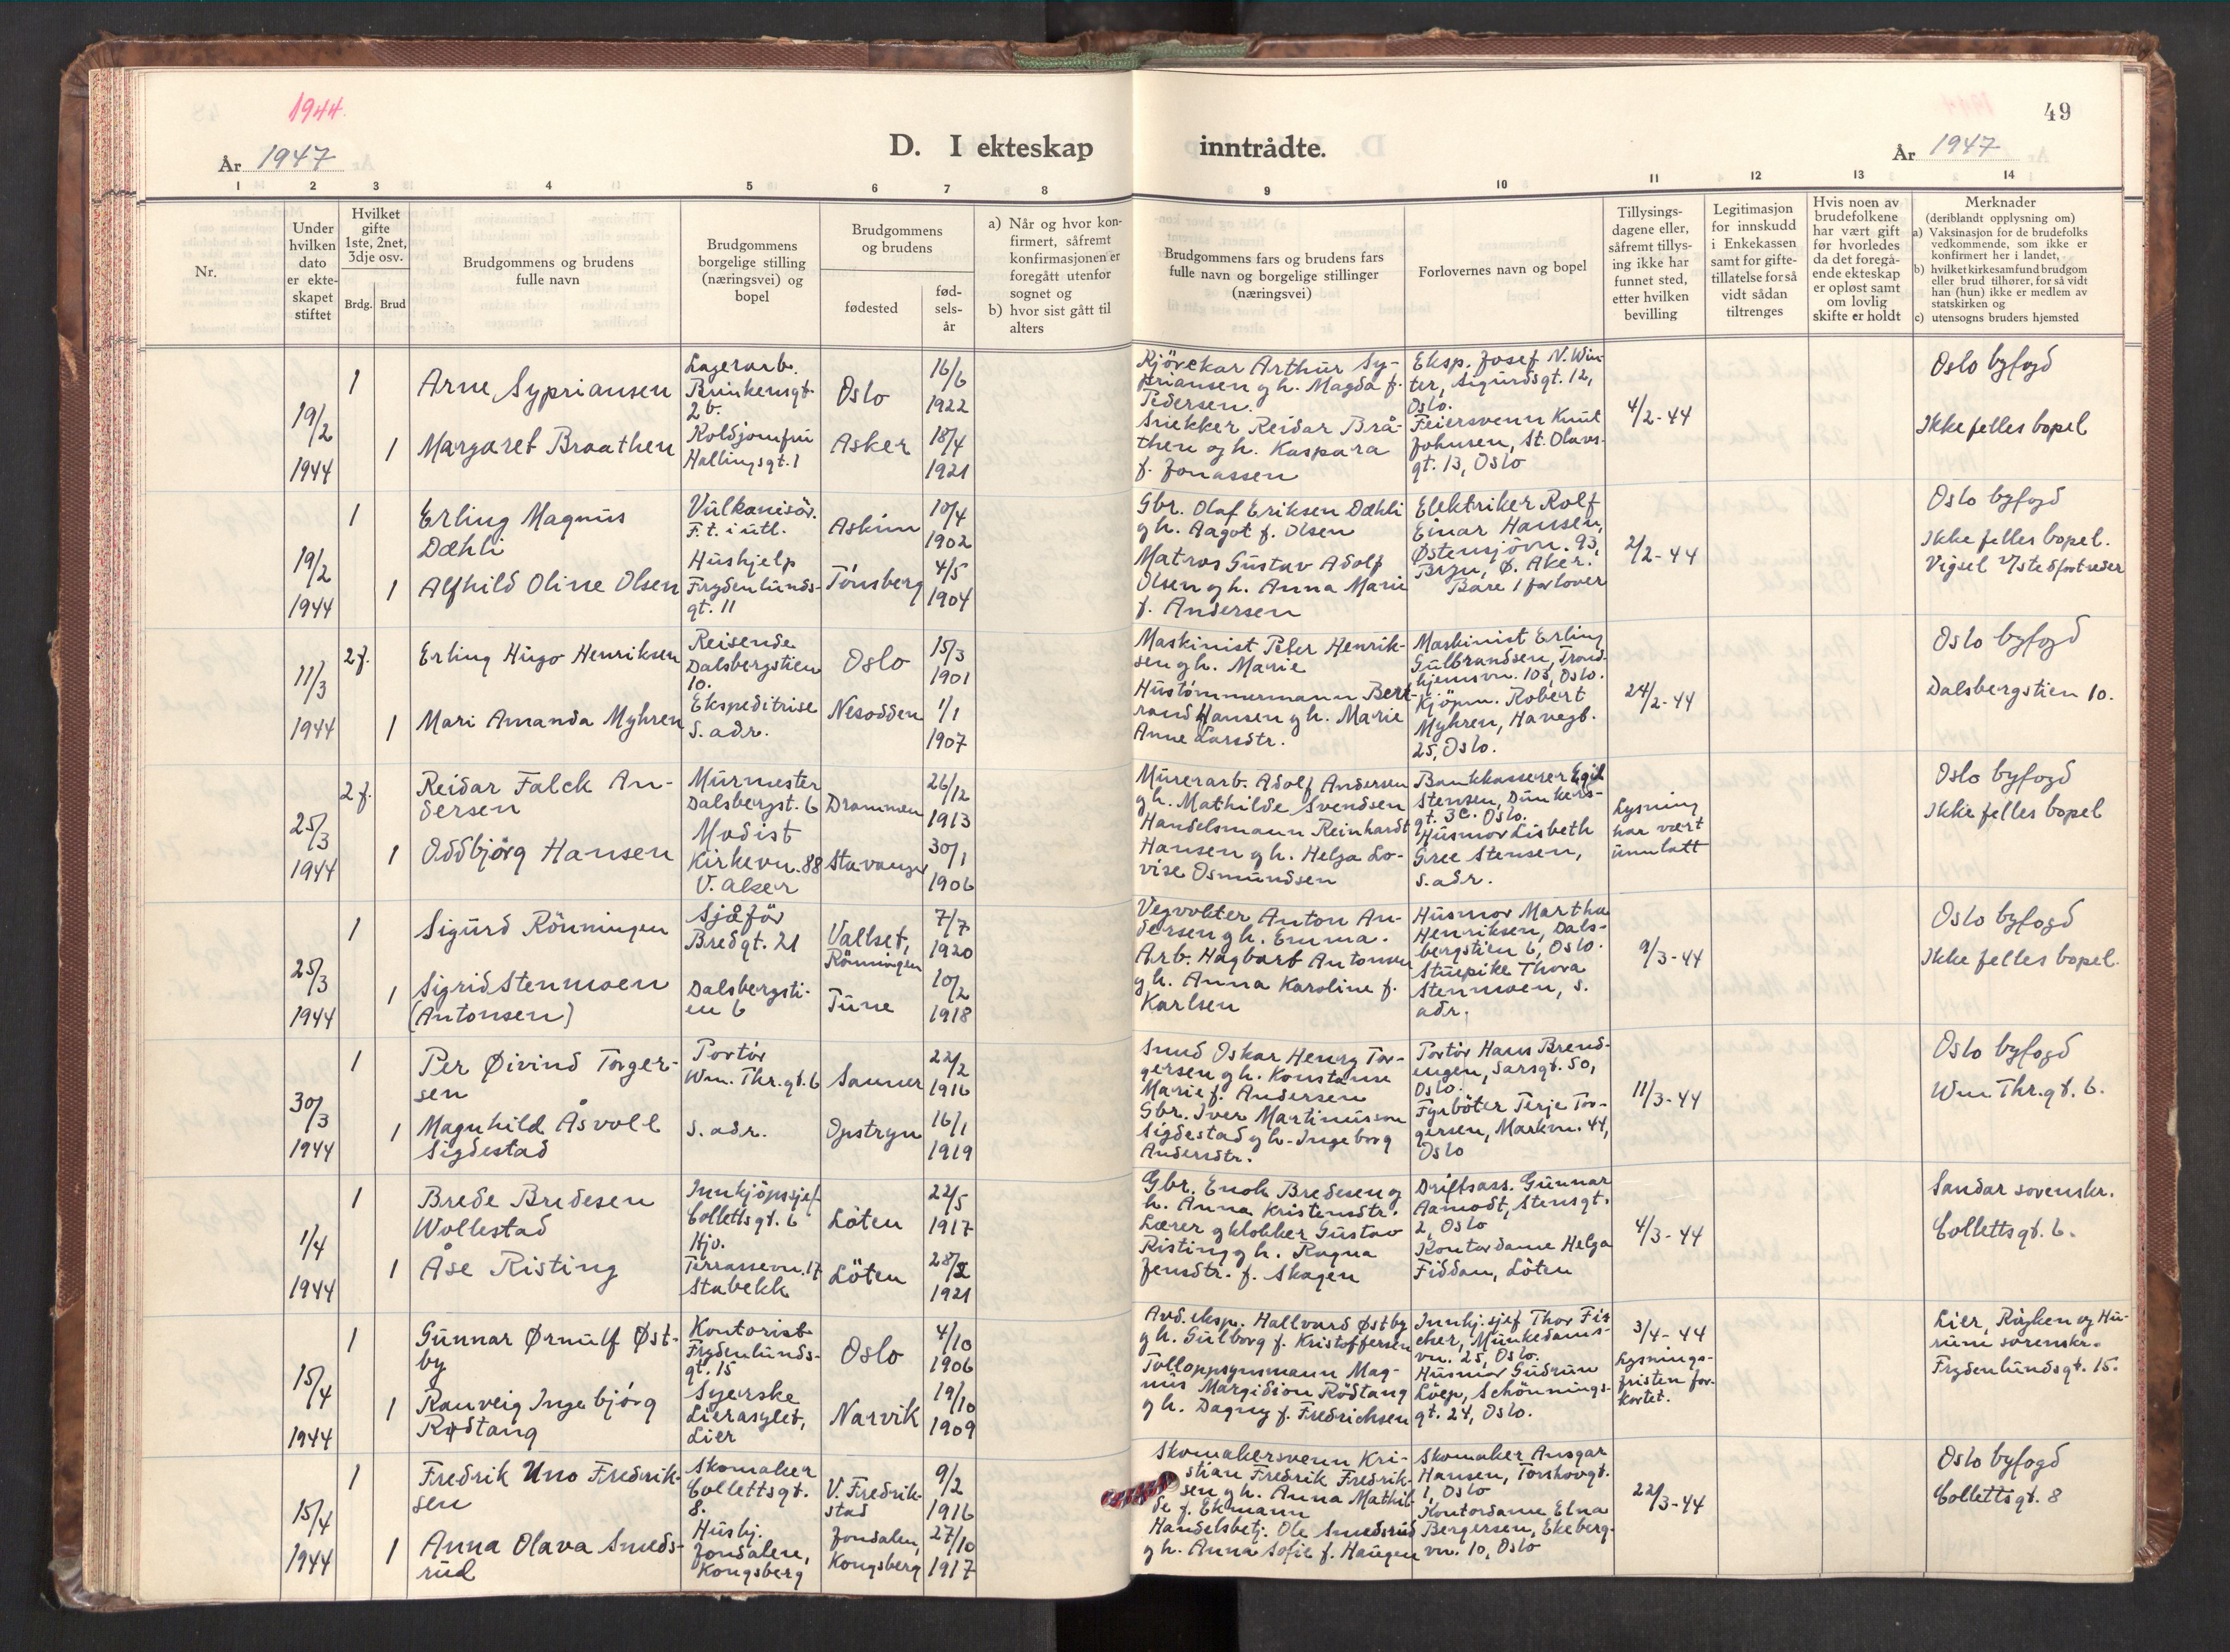 1944
49
År 1947
D. I ekteskap inntrådte.
År 1947
1 2 3 4 5 6 7 8 9 10 11 12 13 14
Nr.
Under
hvilken
dato
er ekte-
skapet
stiftet
Hvilket
gifte
1ste, 2net,
3dje osv.
Brdg. Brud
Brudgommens og brudens
fulle navn
Brudgommens
borgelige stilling
(næringsvei) og
bopel
Brudgommens
og brudens
fødested
fød-
sels-
år
a) Når og hvor kon-
firmert, såfremt
konfirmasjonen er
foregått utenfor
sognet og
b) hvor sist gått til
alters
Brudgommens fars og brudens fars
fulle navn og borgelige stillinger
(næringsvei)
Forlovernes navn og bopel
Tillysings-
dagene eller,
såfremt tillys-
ing ikke har
funnet sted,
etter hvilken
bevilling
Legitimasjon
for innskudd
i Enkekassen
samt for gifte-
tillatelse for så
vidt sådan
tiltrenges
Hvis noen av
brudefolkene
har vært gift
før hvorledes
da det foregå-
ende ekteskap
er opløst samt
om lovlig
skifte er holdt
Merknader
(deriblandt opplysning om)
a) Vaksinasjon for de brudefolks
vedkommende, som ikke er
konfirmert her i landet,
b) hvilket kirkesamfund brudgom
eller brud tilhører, for så vidt
han (hun) ikke er medlem av
statskirken og
c) utensogns bruders hjemsted
19/2
1944
1
Arne Sypriansen
Lagerarb.
Brinkensgt.
2b.
Oslo
16/6
1922
1
Margaret Braathen
Koldjomfru
Hallingsgt. 1
Asker
18/4
1921
Kjörekar Arthur Sy-
priansen og h. Magda f.
Pedersen.
Snekker Reidar Brå-
then og h. Kaspara
f. Jonassen
Eksp. Josef N. Win-
ter, Sigurdsgt. 12,
Oslo.
Feiersvenn Knut
Johnsen, St. Olavs-
gt. 13, Oslo
4/2-44
Oslo byfogd
Ikke felles bopel
19/2
1944
1
Erling Magnus
Dæhli
Vulkanisör.
F.t. i utl.
Askim
10/4
1902
1
Alfhild Oline Olsen
Hushjelp
Frydenlunds-
gt. 11
Tönsberg
4/5
1904
Gbr. Olaf Eriksen Dæhli
og h. Aagot f. Olsen
Matros Gustav Adolf
Olsen og h. Anna Marie
f. Andersen
Elektriker Rolf
Einar Hansen,
Østensjövn. 93,
Bryn, Ø. Aker.
Bare 1 forlover
2/2-44
Oslo byfogd
Ikke felles bopel.
Vigsel v/stedfortreder
11/3
1944
2 f.
Erling Hugo Henriksen
Reisende
Dalsbergstien
10.
Oslo
15/3
1901
1
Mari Amanda Myhren
Ekspeditrise
s. adr.
Nesodden
1/1
1907
Maskinist Peter Henrik-
sen og h. Marie
Hustömmermann Bert-
rand Hansen og h. Marie
Anne Larsdtr.
Maskinist Erling
Gulbrandsen, Trond-
hjemsvn. 103, Oslo.
Kjöpm. Robert
Myhren, Havegt.
25, Oslo.
24/2-44
Oslo byfogd
Dalsbergstien 10.
25/3
1944
2 f.
Reidar Falck An-
dersen
Murmester
Dalsbergst. 6
Drammen
26/12
1913
1
Oddbjörg Hansen
Modist
Kirkevn. 88
V. Aker
Stavanger
30/1
1906
Murerarb. Adolf Andersen
og h. Mathilde Svendsen
Handelsmann Reinhardt
Hansen og h. Helga Lo-
vise Osmundsen
Bankkasserer Egil
Stensen, Dunkers-
gt. 3c. Oslo.
Husmor Lisbeth
Gree Stensen,
s. adr.
Lysning
har vært
unnlatt
Oslo byfogd
Ikke felles bopel
25/3
1944
1
Sigurd Rönningen
Sjåför
Bredgt. 21
Vallset,
Rönningen
7/7
1920
1
Sigrid Stenmoen
(Antonsen)
Dalsbergsti-
en 6
Tune
10/2
1918
Vegvokter Anton An-
dersen og h. Emma.
Arb. Hagbart Antonsen
og h. Anna Karoline f.
Karlsen
Husmor Martha
Henriksen, Dals-
bergstien 6, Oslo.
Stuepike Thora
Stenmoen, s.
adr.
9/3-44
Oslo byfogd
Ikke felles bopel.
30/3
1944
1
Per Øivind Torger-
sen
Portör
Wm. Thr. gt. 6
Sanner
22/2
1916
1
Magnhild Åsvoll
Sigdestad
s. adr.
Opstryn
16/1
1919
Smed Oskar Henry Tor-
gersen og h. Konstanse
Marie f. Andersen
Gbr. Iver Martinusson
Sigdestad og h. Ingeborg
Andersdtr.
Portör Hans Brend-
engen, Sarsgt. 50,
Oslo.
Fyrböter Terje Tor-
gersen, Markvn. 44,
Oslo
11/3-44
Oslo byfogd
Wm Thr. gt. 6.
1/4
1944
1
Brede Bredesen
Wollestad
Innkjöpssjef
Collettsgt. 6
Löten
22/5
1917
1
Åse Risting
Hjv.
Terrassevn. 17
Stabekk
Löten
28/2
1921
Gbr. Enok Bredesen og
h. Anna Kristensdtr.
Lærer og klokker Gustav
Risting og h. Ragna
Jensdtr. f. Skagen
Driftsass. Gunnar
Aamodt, Stensgt.
2, Oslo
Kontordame Helga
Fiddan, Löten
4/3-44
Sandar sorenskr.
Collettsgt. 6.
15/4
1944
1
Gunnar Ørnulf Øst-
by
Kontorist
Frydenlunds-
gt. 15
Oslo
4/10
1906
1
Ranveig Ingebjörg
Rødtang
Syerske
Lierasylet,
Lier
Narvik
19/10
1909
Avd. eksp. Hallvard Østby
og h. Gulborg f. Kristoffersen
Tolloppsynsmann Mag-
nus Margido Rödtang
og h. Dagny f. Fredrichsen
Innkj. sjef Thor Fis
cher, Munkedams-
vn. 25, Oslo.
Husmor Gudrun
Löep, Schönnings-
gt. 24, Oslo.
3/4-44
Lysnings-
fristen for-
kortet.
Lier, Röyken og Hu-
rum sorenskr.
Frydenlundsgt. 15.
15/4
1944
1
Fredrik Uno Fredrik-
sen
Skomaker
Collettsgt.
8.
V. Fredrik-
stad
9/2
1916
1
Anna Olava Smeds-
rud
Hushj.
Jondalen,
Kongsberg
Jondalen,
Kongsberg
27/10
1917
Skomakersvenn Kri-
stian Fredrik Fredrik-
sen og h. Anna Mathil-
de f. Ekmann
Handelsbetj. Ole Smedsrud
og h. Anna Sofie f. Haugen
Skomaker Ansgar
Hansen, Torshovgt.
1, Oslo
Kontordame Elna
Bergersen, Ekeberg-
vn. 10, Oslo
22/3-44
Oslo byfogd
Collettsgt. 8